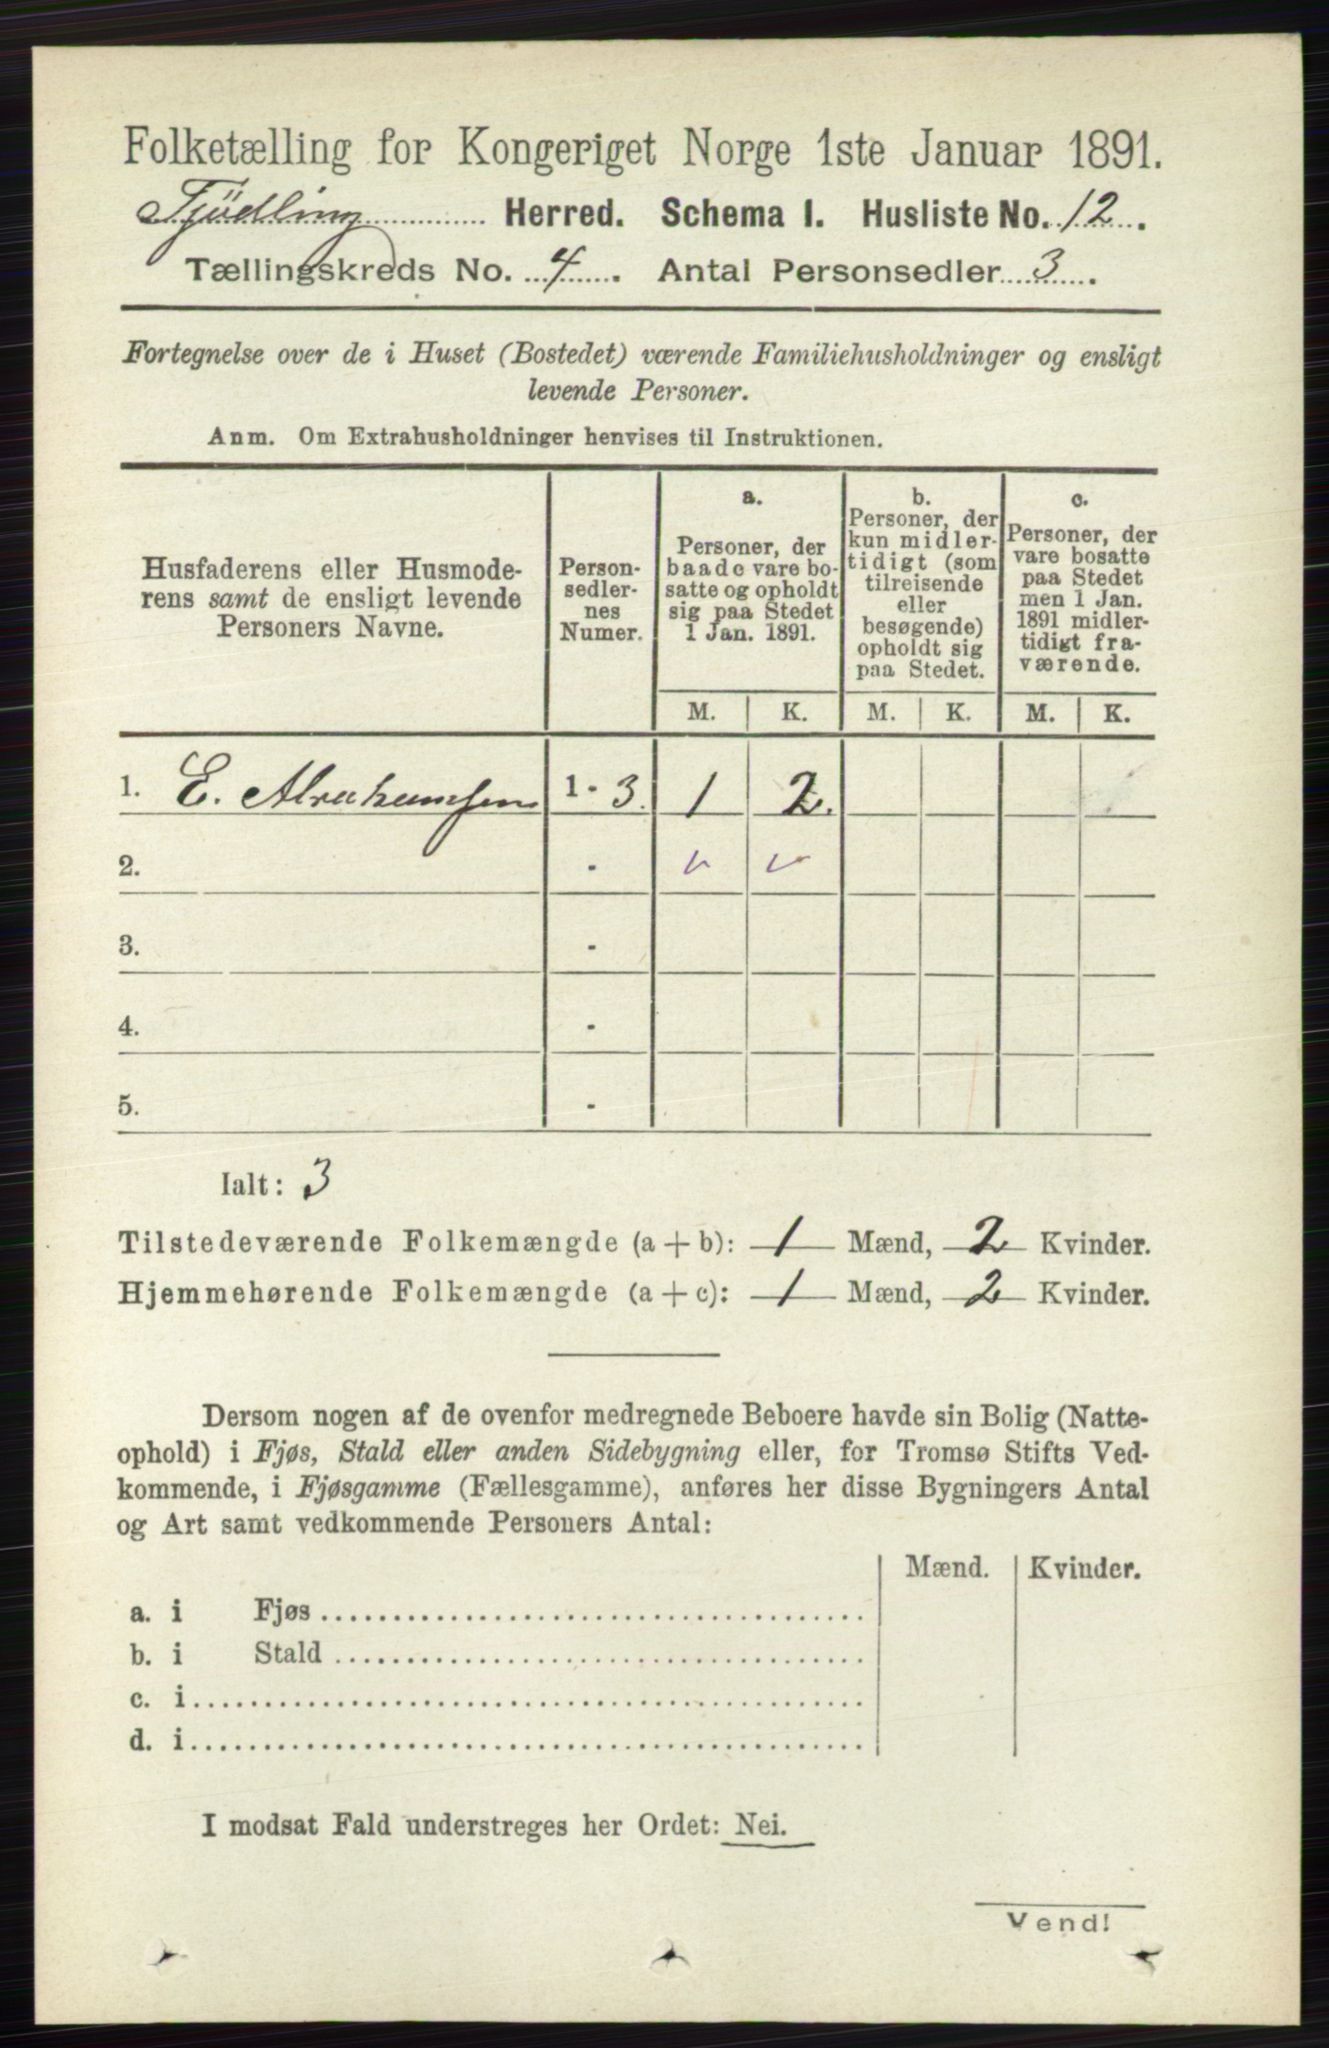 Folketælling for Kongeriget Norge 1ste Januar 1891.
Tjödling Herred. Schema I. Husliste No. 12.
Tællingskreds No. 4. Antal Personsedler 3.
Fortegnelse over de i Huset (Bostedet) værende Familiehusholdninger og ensligt
levende Personer.
Anm. Om Extrahusholdninger henvises til Instruktionen.
Husfaderens eller Husmode-
rens samt de ensligt levende
Personers Navne.
Person-
sedler-
nes
Numer.
a.
Personer, der
baade vare bo-
satte og opholdt
sig paa Stedet
1 Jan. 1891.
b.
Personer, der
kun midler-
tidigt (som
tilreisende
eller
besøgende)
opholdt sig
paa Stedet.
c.
Personer, der
vare bosatte
paa Stedet
men 1 Jan.
1891 midler-
tidigt fra-
værende.
M. K. M. K. M. K.
1. E. Abrahamsen 1 - 3. 1 2.
2. -
3. -
4. -
5. -
Ialt: 3
Tilstedeværende Folkemængde (a + b): 1 Mænd, 2 Kvinder.
Hjemmehørende Folkemængde (a + c): 1 Mænd, 2 Kvinder.
Dersom nogen af de ovenfor medregnede Beboere havde sin Bolig (Natte-
ophold) i Fjøs, Stald eller anden Sidebygning eller, for Tromsø Stifts Ved-
kommende, i Fjøsgamme (Fællesgamme), anføres her disse Bygningers Antal
og Art samt vedkommende Personers Antal:
Mænd. Kvinder.
a. i Fjøs
b. i Stald
c. i
d. i
I modsat Fald understreges her Ordet: Nei.
Vend!